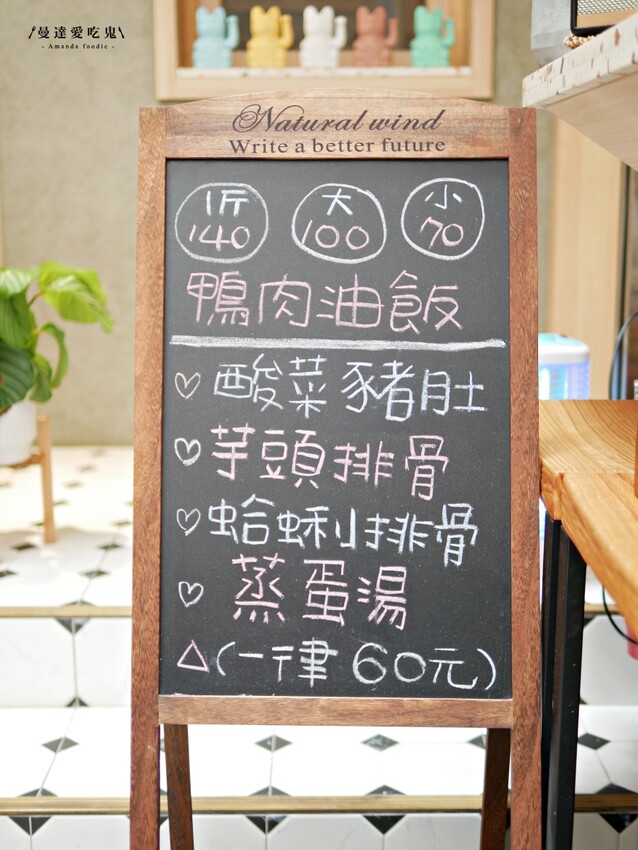 曼達愛吃鬼
- Amanda foodie -
Natural wind
Write a better future
斤 大 小
140 100 70
鴨肉油飯
酸菜豬肚
芋頭排骨
蛤蜊排骨
蒸蛋湯
△(一律60元)